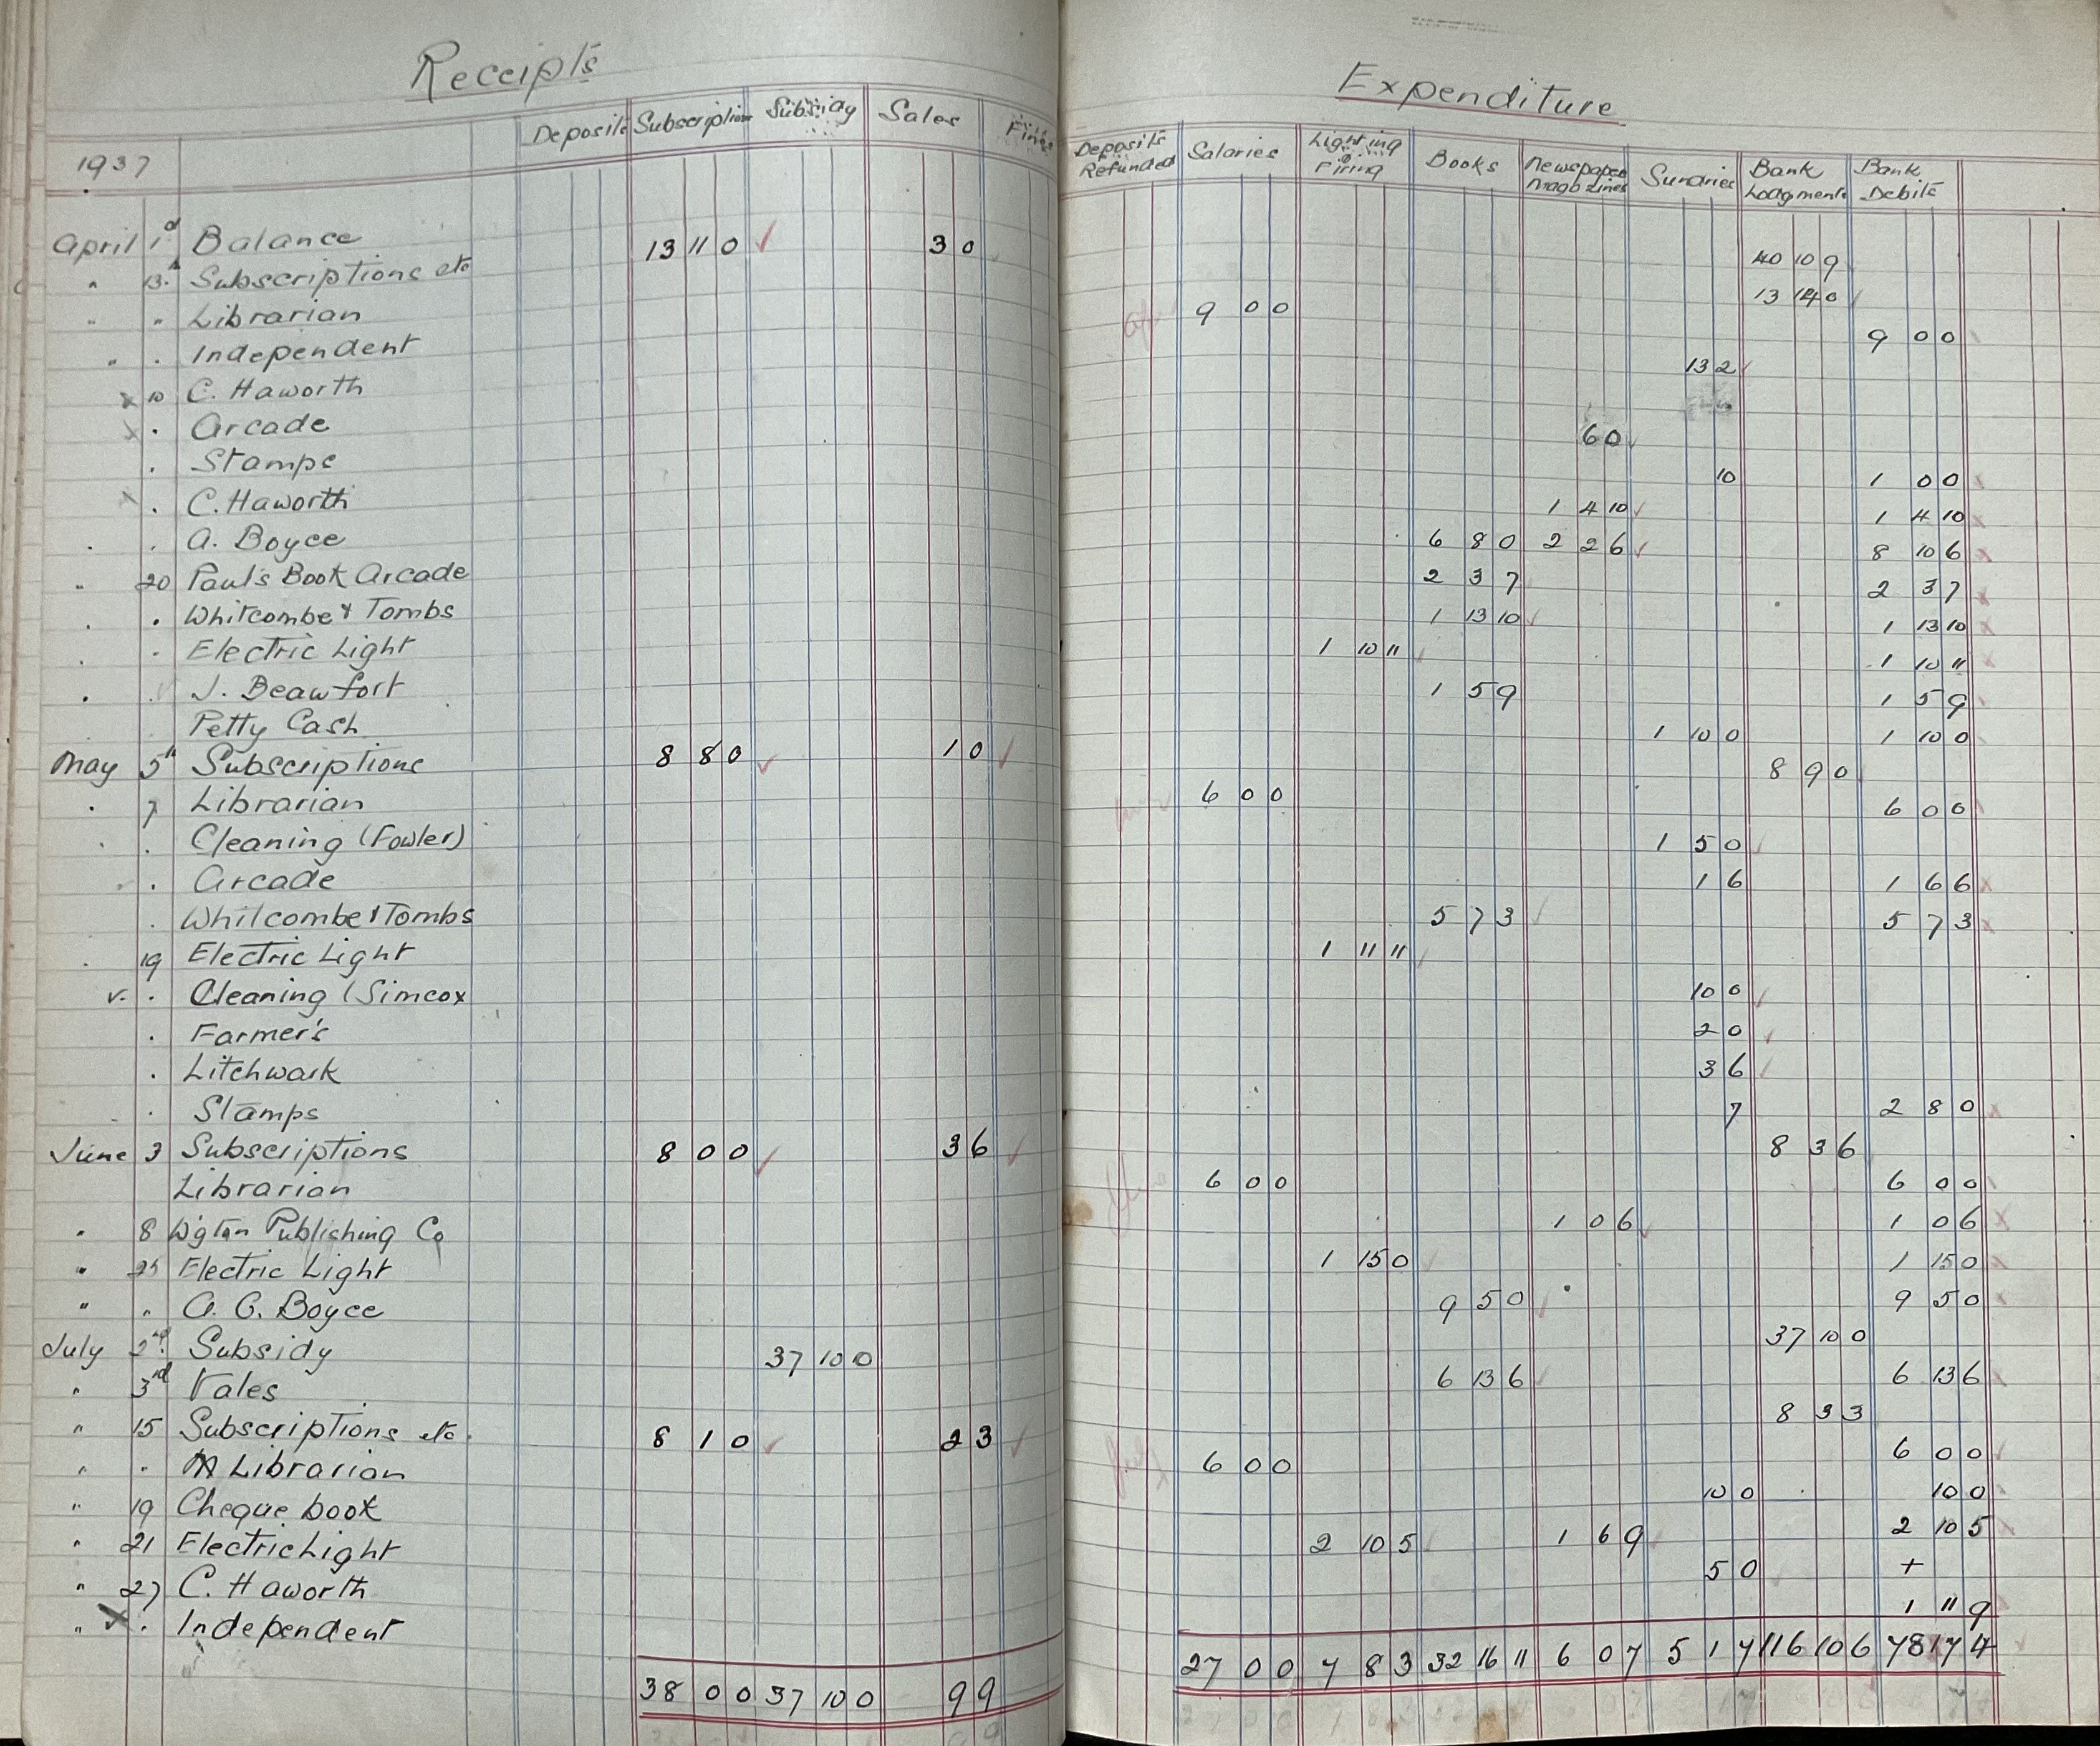 Receipts
Deposits Subscriptions Subsidy Sales Fines
1937
April 1st Balance
" 13th Subscriptions etc 13 11 0 ✓ 3 0
" " Librarian
" " Independent
x 10 C. Haworth
x " Arcade
" Stamps
x " C. Haworth
" " A. Boyce
" 20 Paul's Book Arcade
" " Whitcombe & Tombs
" " Electric Light
" " J. Beaufort
Petty Cash
May 5th Subscriptions 8 8 0 ✓ 1 0 ✓
" 7 Librarian
" " Cleaning (Fowler)
" " Arcade
" Whitcombe & Tombs
" 19 Electric Light
v. " Cleaning (Simcox
" Farmer's
" Litchwark
" Stamps
June 3 Subscriptions 8 0 0 ✓ 3 6 ✓
Librarian
" 8 W'gton Publishing Co
" 25 Electric Light
" " A. G. Boyce
July 2nd Subsidy 37 10 0
" 3rd Vales
" 15 Subscriptions etc. 8 1 0 ✓ 2 3 ✓
" " Librarian
" 19 Cheque book
" 21 Electric Light
" 27 C. Haworth
" x " Independent
38 0 0 37 10 0 9 9
Expenditure
Deposits Refunded Salaries Lighting & Firing Books Newspapers Magazines Sundries Bank Lodgments Bank Debits
40 10 9
13 14 0
9 0 0
9 0 0
13 2 ✓
6 0 ✓
10 1 0 0
1 4 10 ✓ 1 4 10
6 8 0 2 2 6 ✓ 8 10 6
2 3 7 2 3 7
1 13 10 ✓ 1 13 10
1 10 11 1 10 11
1 5 9 1 5 9
1 10 0 1 10 0
8 9 0
6 0 0 6 0 0
1 5 0 ✓
1 6 1 6 6
5 7 3 ✓ 5 7 3
1 11 11
10 0 ✓
2 0 ✓
3 6 ✓
7 2 8 0
8 3 6
6 0 0 6 0 0
1 0 6 ✓ 1 0 6
1 15 0 1 15 0
9 5 0 ✓ 9 5 0
37 10 0
6 13 6 ✓ 6 13 6
8 3 3
6 0 0 6 0 0
10 0 10 0
2 10 5 1 6 9 2 10 5
5 0 +
1 11 9
27 0 0 7 8 3 32 16 11 6 0 7 5 1 7 116 10 6 78 17 4